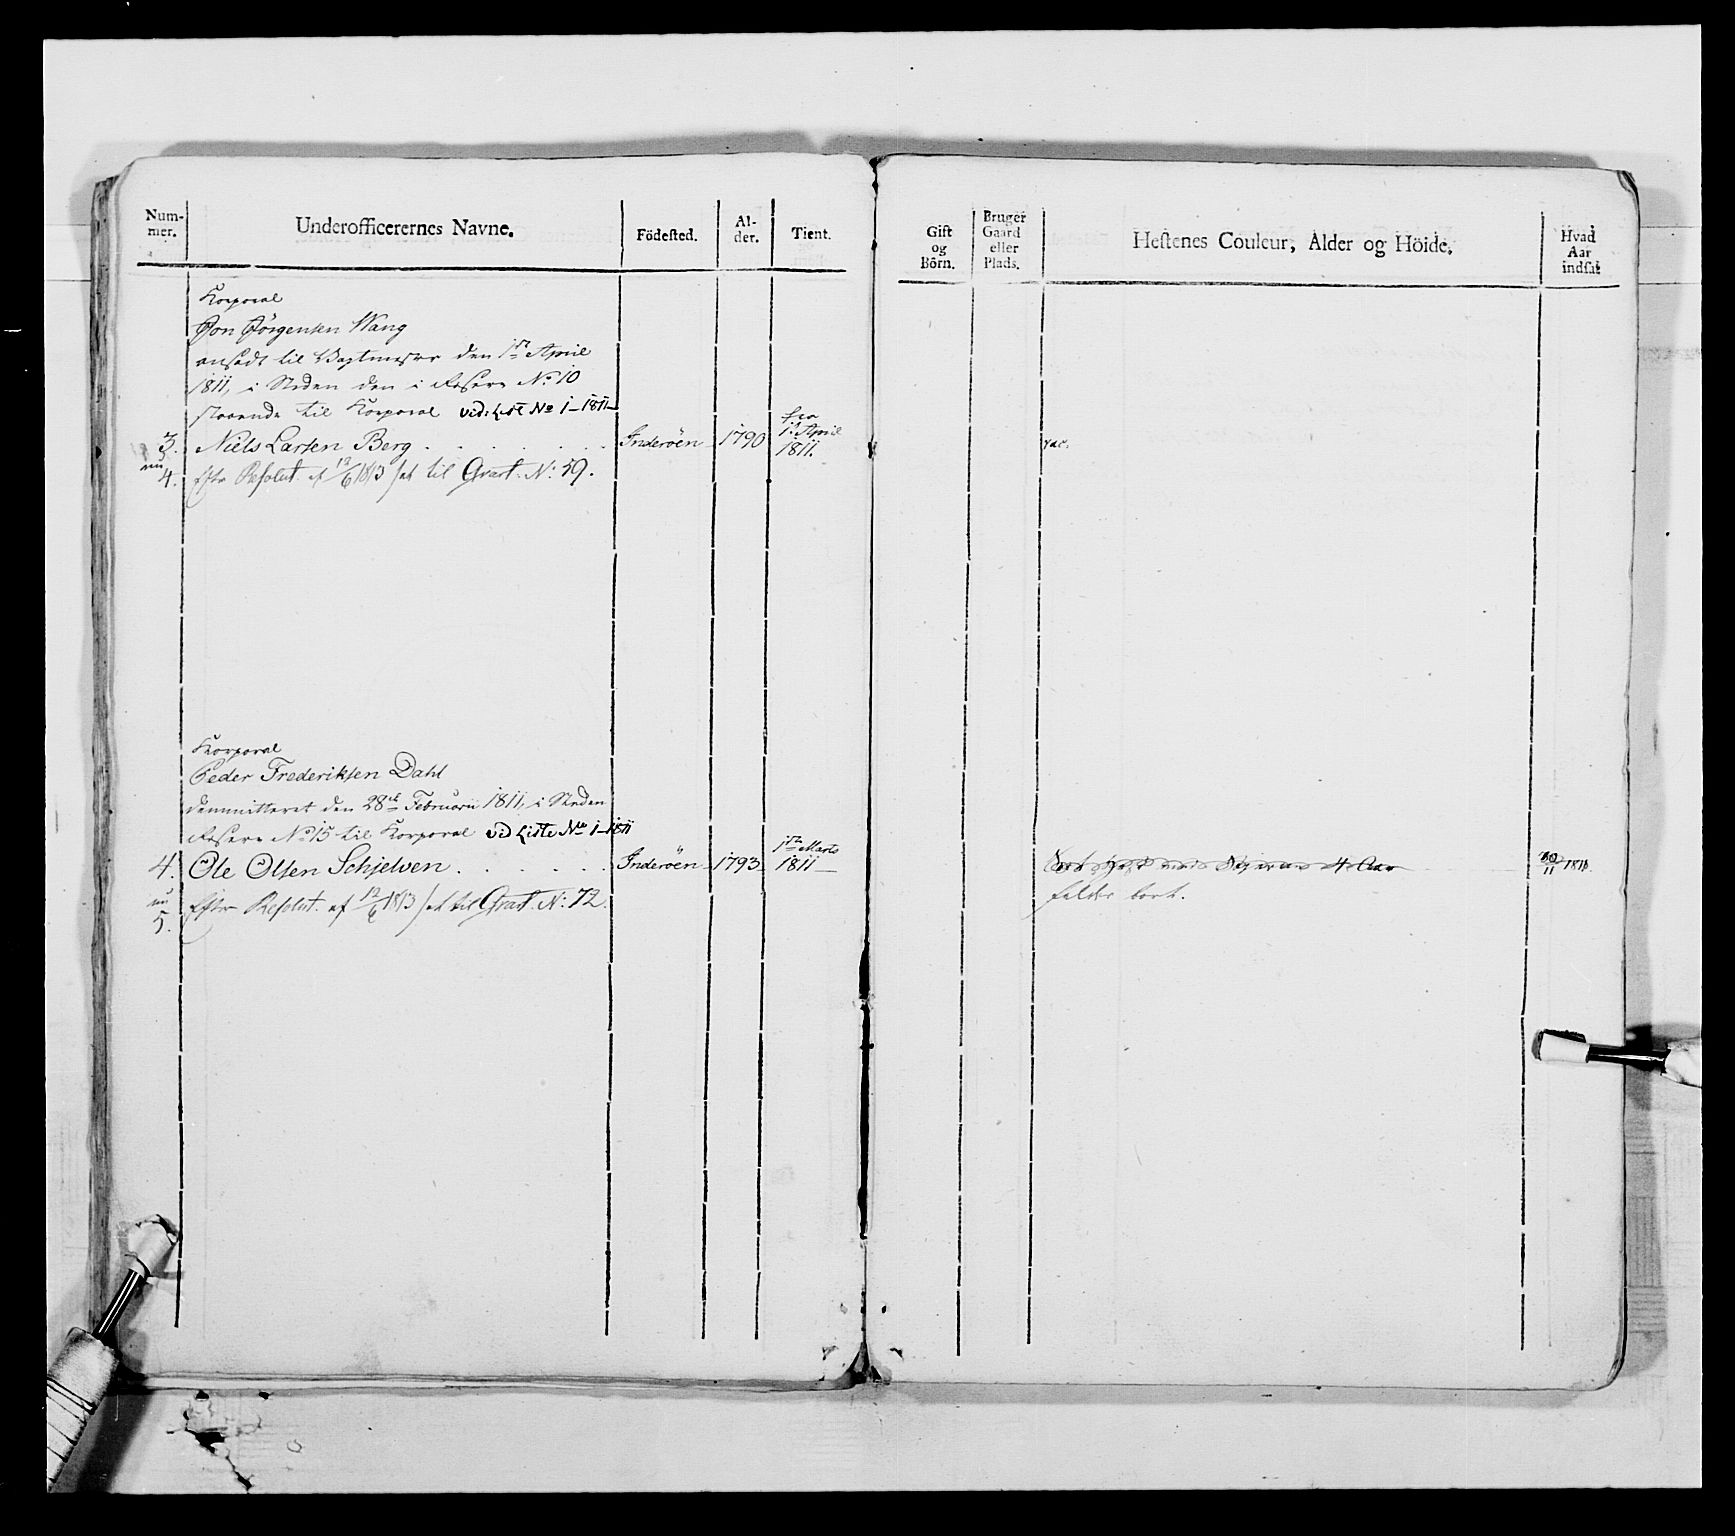 Num-
mer.
Underofficerernes Navne.
Födested.
Al-
der.
Tient.
Gift
og
Börn.
Bruger
Gaard
eller
Plads.
Hestenes Couleur, Alder og Höide.
Hvad
Aar
indsat
Korporal
Jon Jörgensen Wang
ansadt til Vagtmester den 1te April
1811, i Steden den i Reserv No 10
staaende til Korporal vid: Liste No 1-1811
3. Niels Larsen Berg Inderöen 1790 fra 1te April 1811. vac.
nu
4. Efter Resolut. af 12/6 1813 sat til Qvart. No: 59.
Korporal
Peder Frederiksen Dahl
demmitteret den 28de Februarii 1811, i Steden
Reserv No 15 til Korporal vid Liste No 1-1811
4. Ole Olsen Schjelven Inderöen 1793 1te Marts 1811 4 Aar 1811.
nu
5. Efter Resolut. af 12/6 1813 sat til Qvart. No: 72.
falder bort.